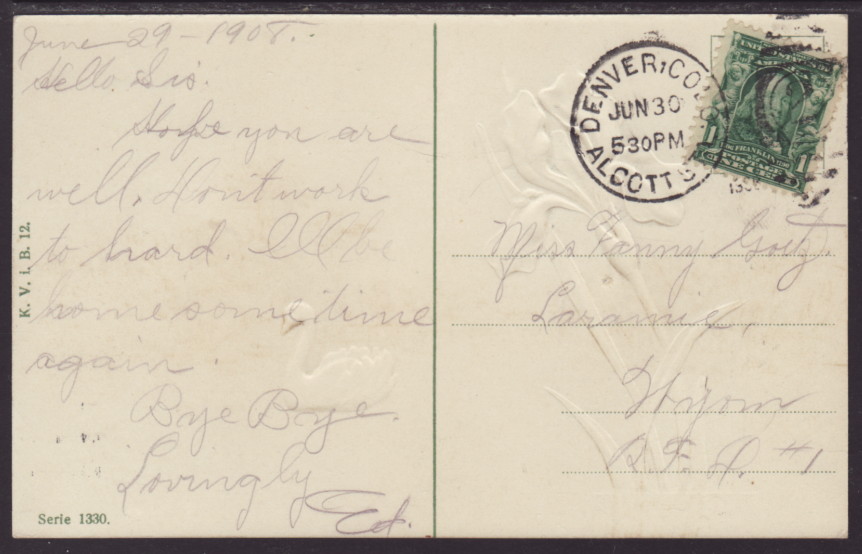 June 29-1908.
Hello Sis.
Hope you are
well. Don't work
to hard. Ill be
home sometime
again.
Bye Bye.
Lovingly
Ed.
K. V. i. B. 12.
Serie 1330.
DENVER, COLO.
JUN 30
530PM
ALCOTT S
UNITED STATES OF AMERICA
FRANKLIN
1 1
Miss Fanny Goetz.
Laramie,
Wyom
R.F.D. #1